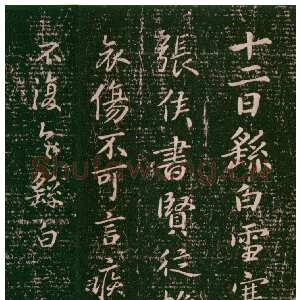 十二日繇白雪寒
張侯書賢從帷
哀傷不可言疾
不復多繇白